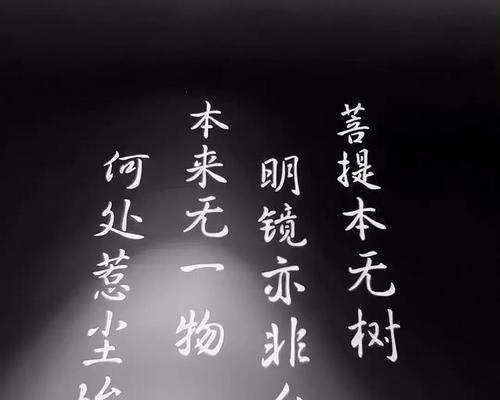 菩提本无树
明镜亦非
本来无一物
何处惹尘